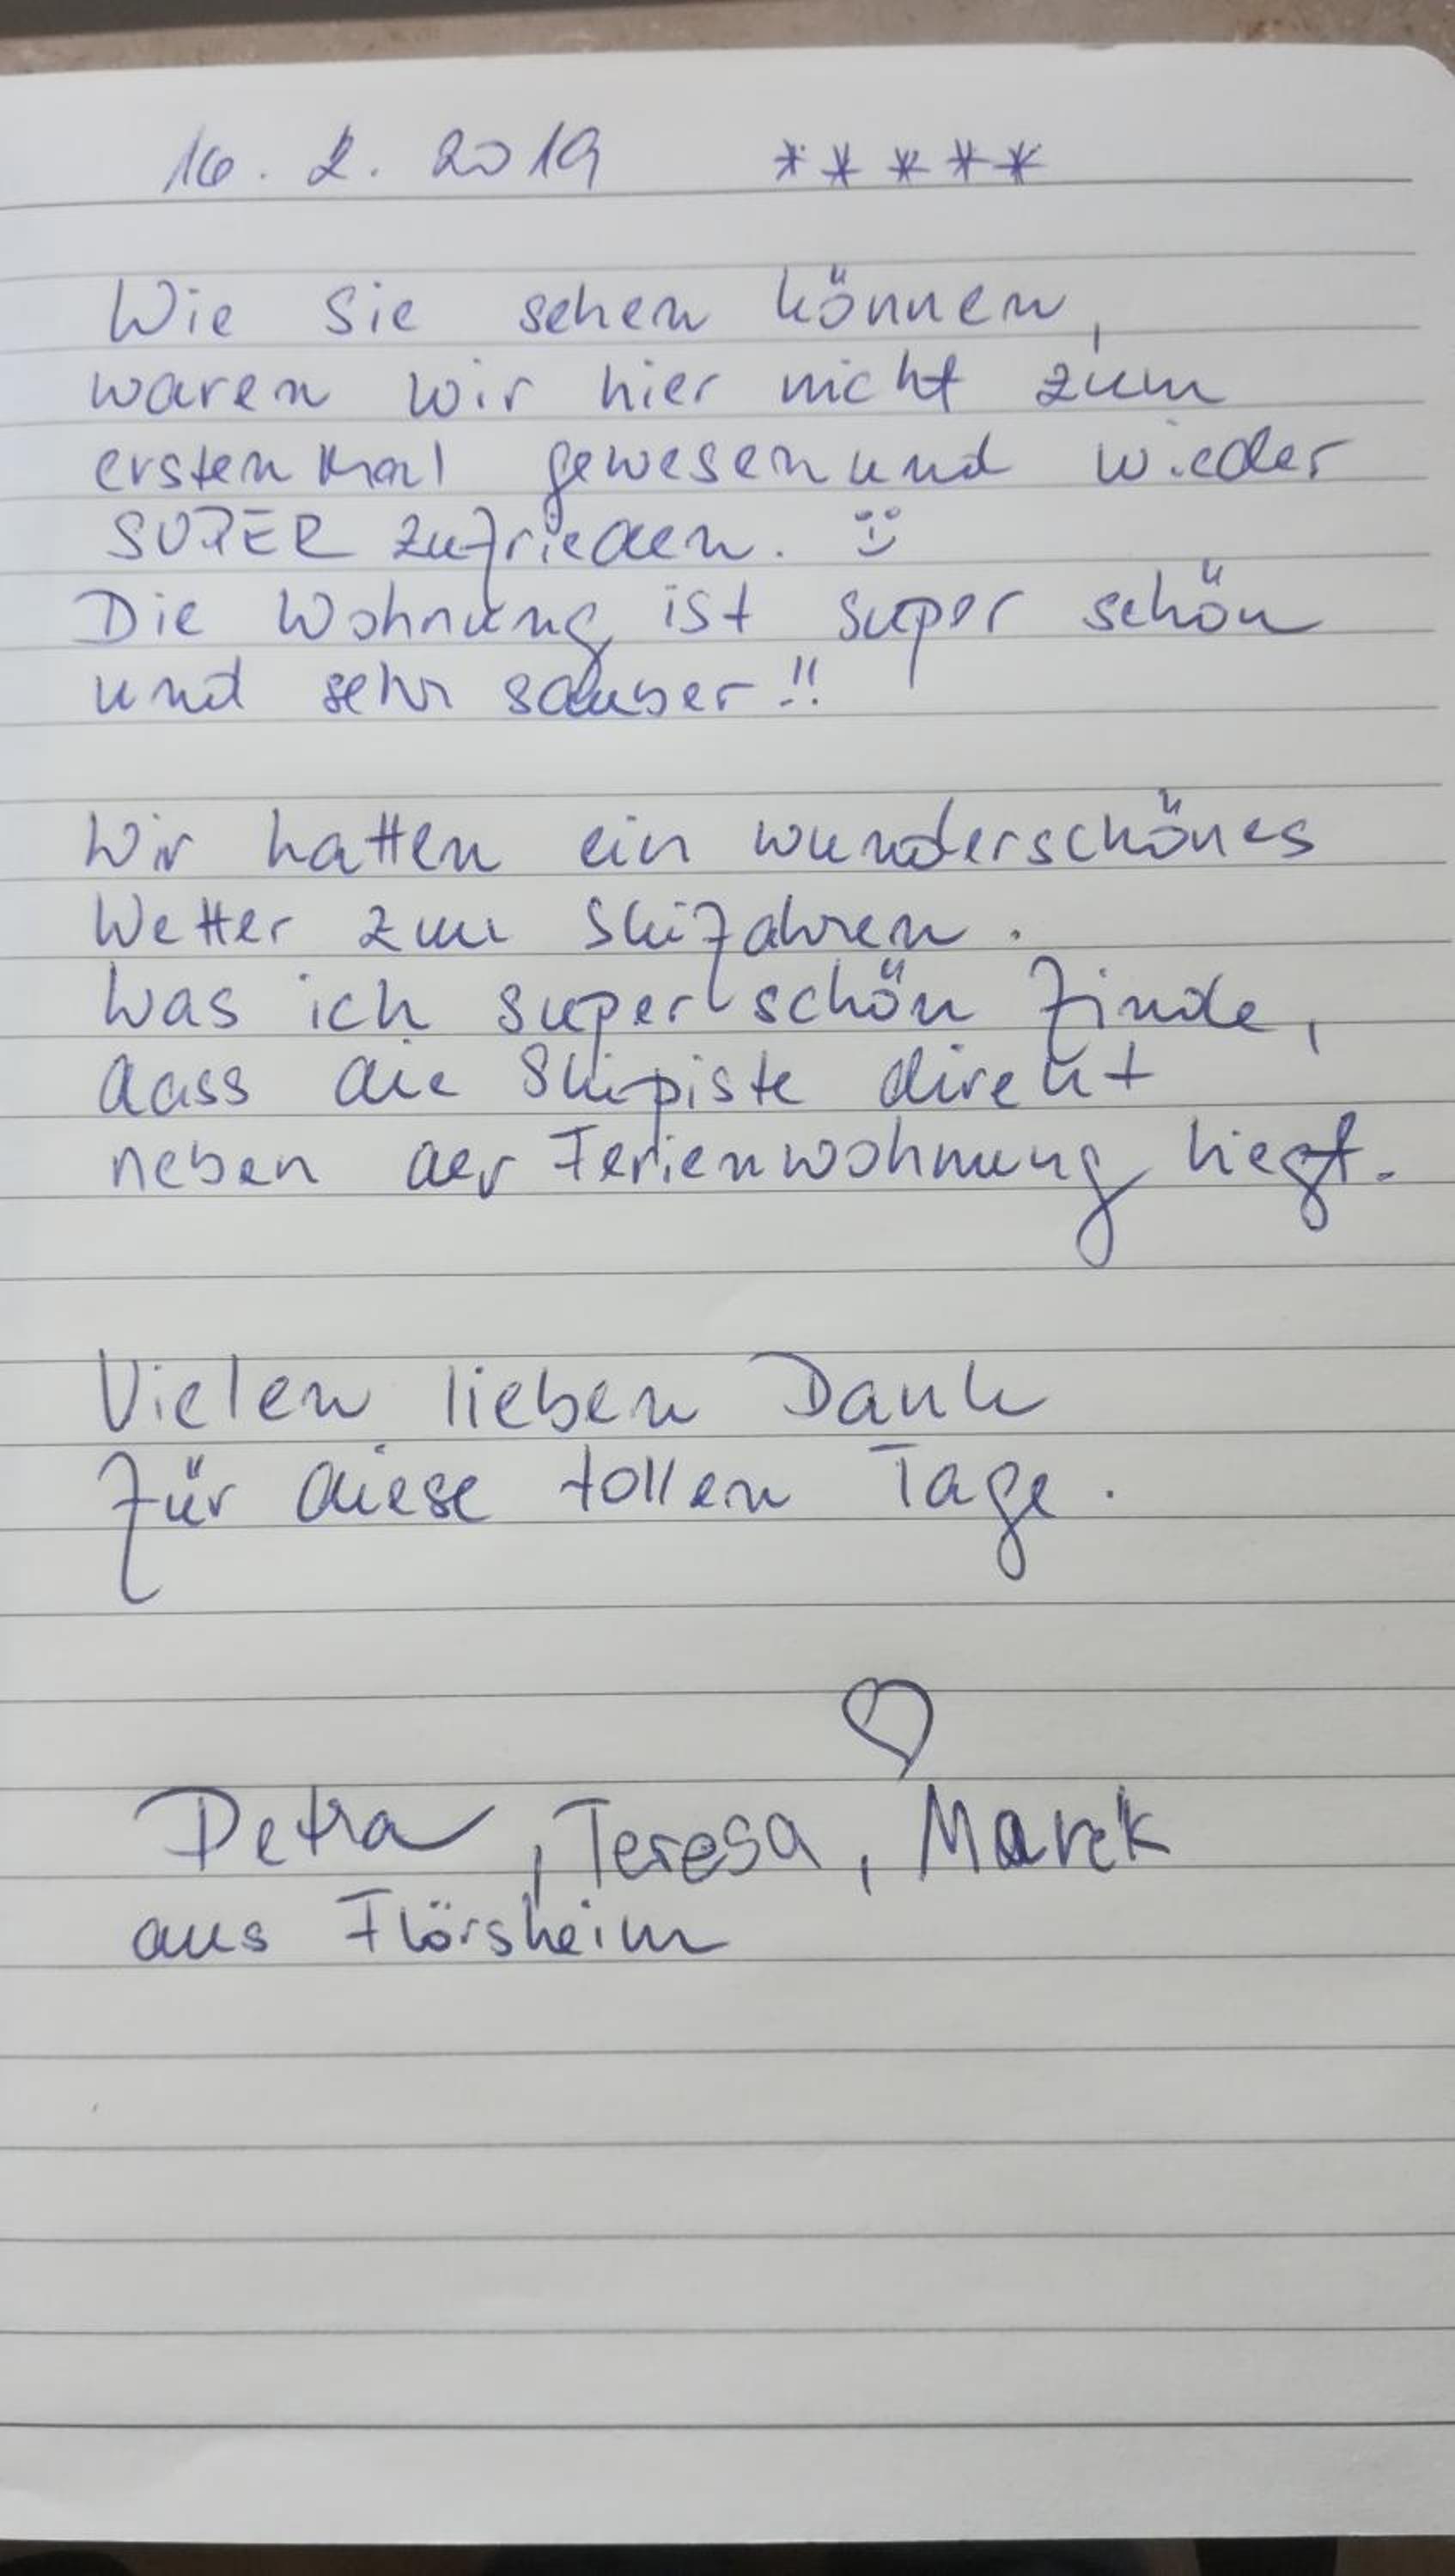 16. 2. 2019 *****
Wie Sie sehen können,
waren wir hier nicht zum
ersten Mal gewesen und wieder
SUPER zufrieden. :)
Die Wohnung ist super schön
und sehr sauber!!
Wir hatten ein wunderschönes
Wetter zum Skifahren.
Was ich super schön finde,
dass die Skipiste direkt
neben der Ferienwohnung liegt.
Vielen lieben Dank
für diese tollen Tage.
♡
Petra, Teresa, Marek
aus Flörsheim